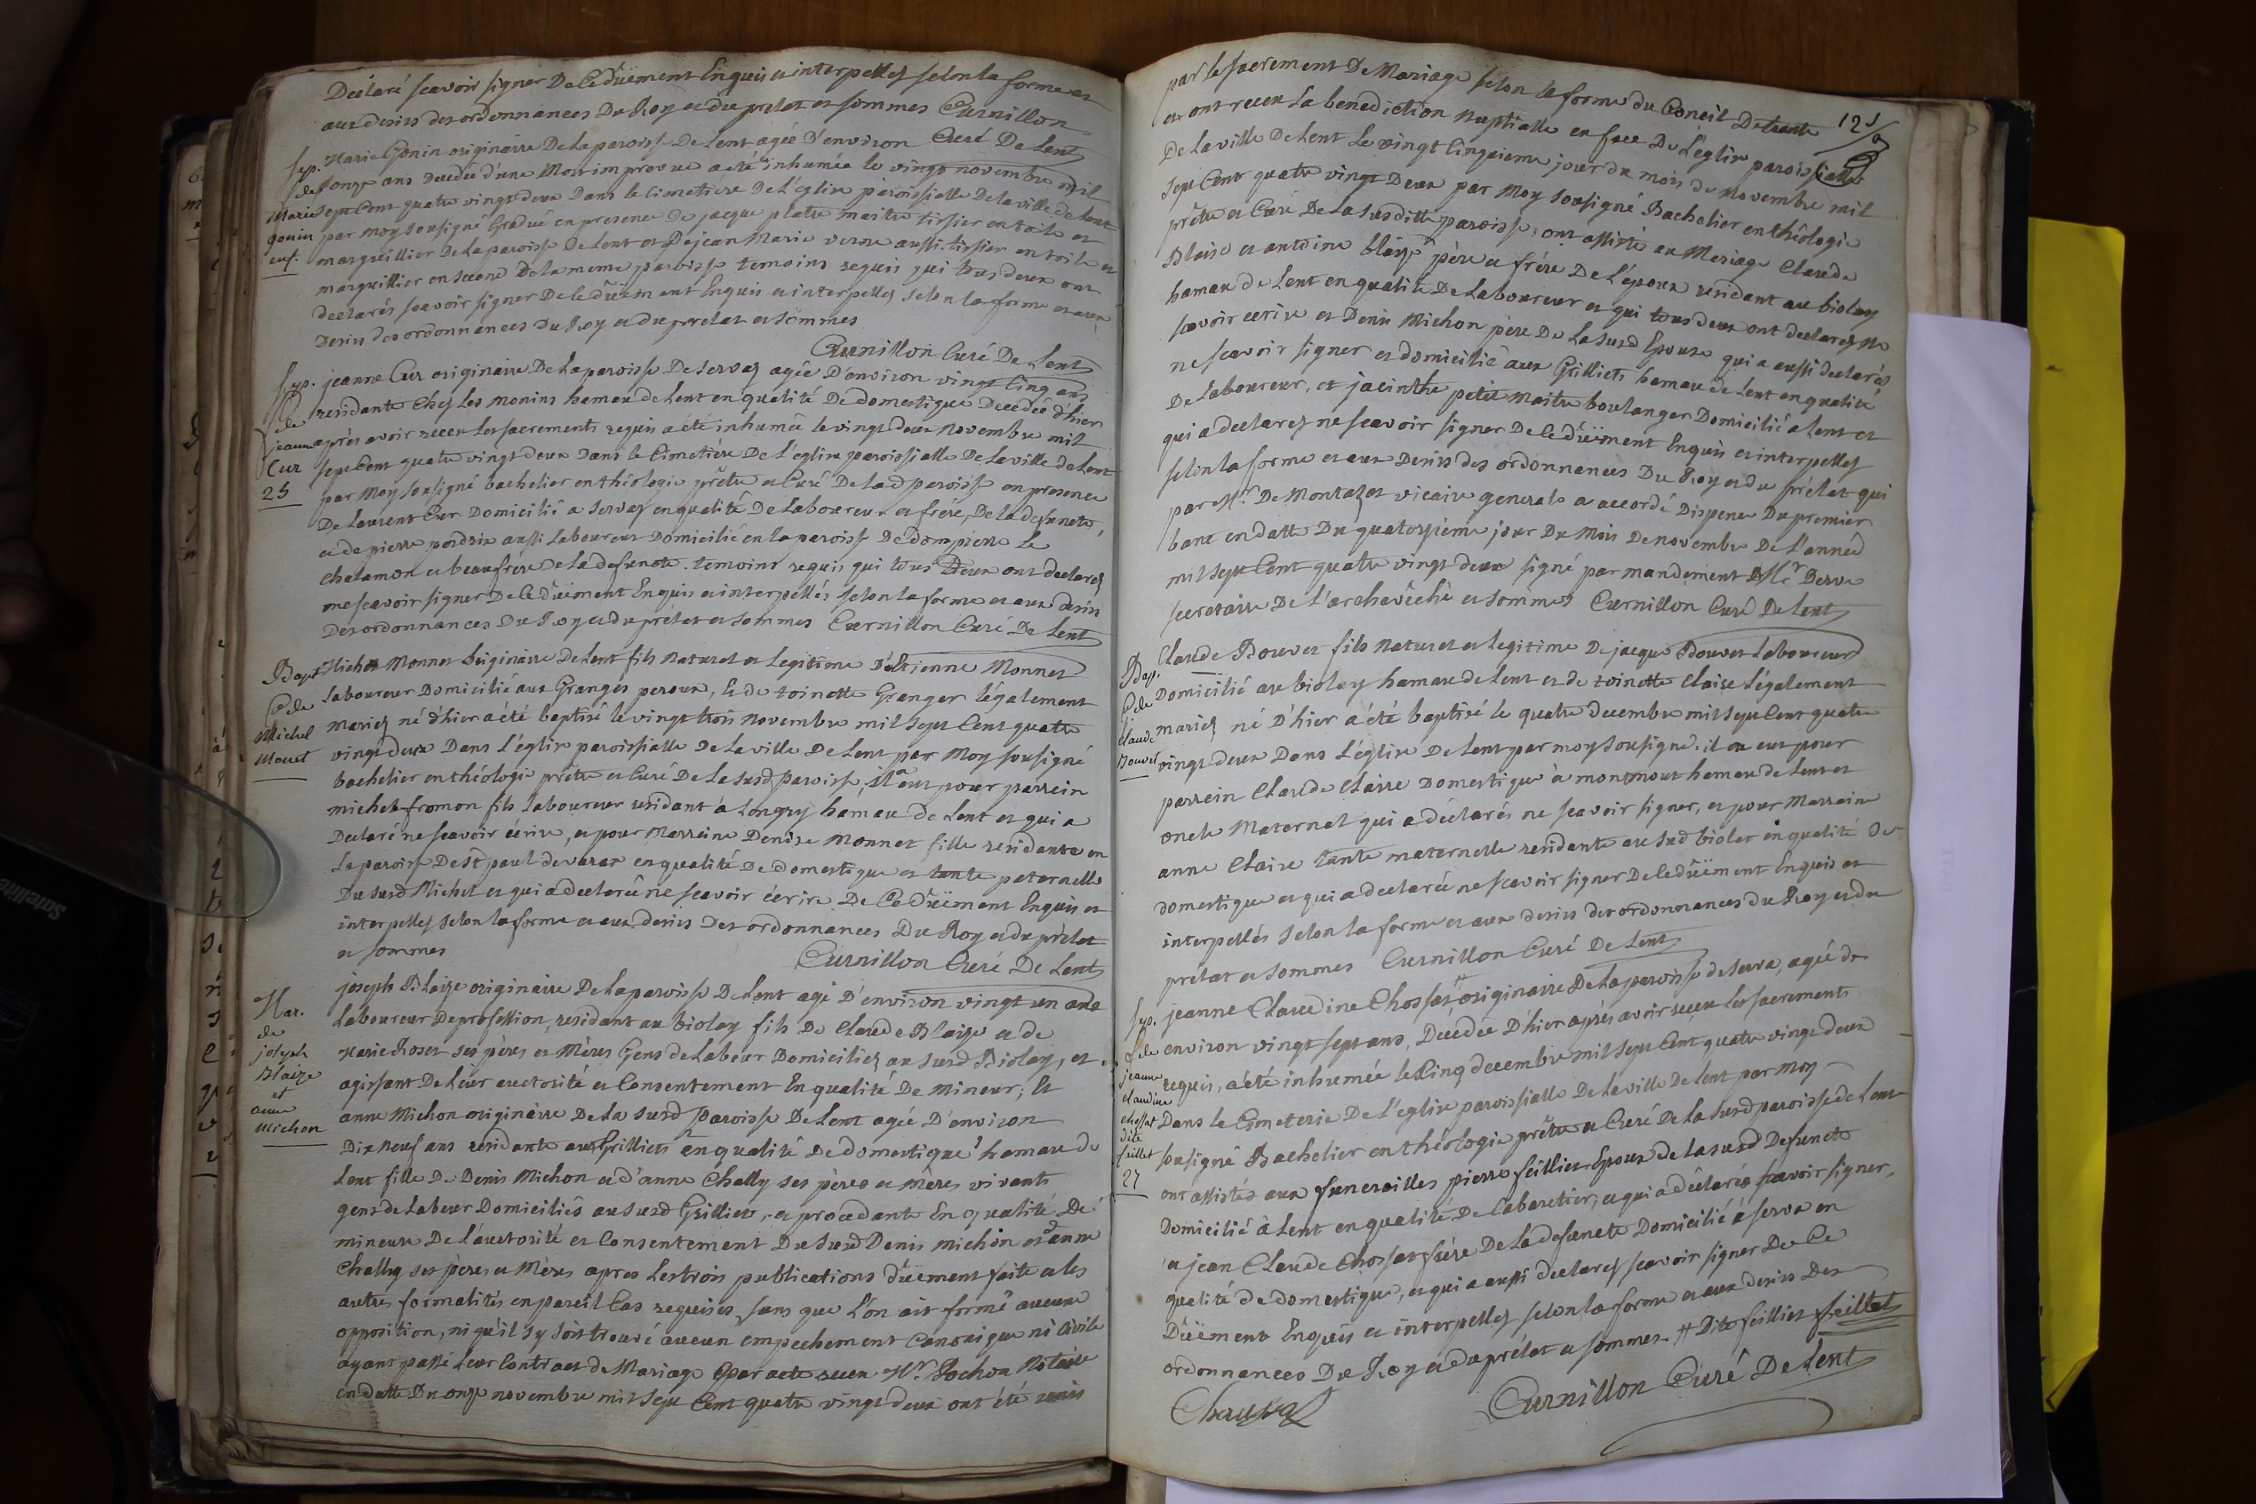 Declaré scavoir signer De Ce düement Enquis et interpellez selon la forme et
aux desirs des ordonnances Du Roy et du prelat et sommes Curnillon
Curé De Lent
Sep.
de
Marie
gonin
enf.
Marie Gonin originaire De la paroisse De Lent agée D'environ
onze ans Decedée d'une Mort improvue a été inhumée le vingt novembre mil
sept Cent quatre vingt deux Dans le Cimetiere De L'eglise paroissialle De la ville de Lent
par moy sousigné Gradué en presence De jacque platre maitre tissier en toile et
marguillier De la paroisse De Lent et De jean Marie verne aussi tissier en toile et
marguillier en second De la meme paroisse temoins requis qui tous deux ont
declarés scavoir signer De Ce düement Enquis et interpellez selon la forme et aux
Desirs des ordonnances Du Roy et du prelat et sommes
Curnillon Curé De Lent
Sep.
de
jeanne
Cur
25
jeanne Cur originaire De la paroisse De Servas agée D'environ vingt Cinq ans
residante Chez Les monins hameau de Lent en qualité De domestique Decedée d'hier
après avoir receu Les sacrements requis a été inhumée le vingt deux novembre mil
sept Cent quatre vingt deux Dans le Cimetière De L'eglise paroissialle De La ville de Lent
par Moy sousigné bachelier en théologie prêtre et Curé De la d paroisse en presence
De Laurent Cur Domicilié a Servas en qualité De Laboureur et frére De la defuncte,
et de pierre perdrix aussi Laboureur Domicilié en la paroisse De dompierre Le
chalamon et beaufrere De la defuncte. temoins requis qui tous Deux ont declarez
ne scavoir signer De Ce düement Enquis et interpellés selon la forme et aux desirs
Des ordonnances Du Roy et du prélat et sommes Curnillon Curé De Lent
Bapt.
de
Michel
Monet
Michel Monnet originaire De Lent fils naturel et Legitime D'Etienne Monnet
Laboureur Domicilié aux Granges peroux, Et de toinette Granger légalement
Mariez né d'hier a été baptisé le vingt trois novembre mil sept Cent quatre
vingt deux Dans L'église paroissialle De La ville De Lent par Moy sousigné
bachelier en théologie prêtre et Curé De La susd paroisse, Il a eut pour parrein
michel fromon fils laboureur residant a Longry hameau de Lent et qui a
Declaré ne scavoir écrire, et pour Marreine Denise Monnet fille residante en
La paroisse De St paul de varax en qualité De domestique et tante paternelle
Du susd Michel et qui a declarée ne scavoir écrire De Ce Düement Enquis et
interpellez selon la forme et aux desirs Des ordonnances Du Roy et du prélat
et sommes Curnillon Curé De Lent
Mar.
de
joseph
Blaize
et
anne
Michon
joseph Blaize originaire De la paroisse De Lent agé D'environ vingt un ans
Laboureur De profession, residant au biolay fils De Claude Blaise et de
Marie Roset ses pères et Mères Gens de Labeur Domiciliez au susd Biolay, et
agissant De Leur auctorité et Consentement En qualité De Mineur; Et
anne Michon originaire De La susd paroisse De Lent agée D'environ
Dix neuf ans residante aux Grilliets en qualité De domestique hameau de
Lent fille De Denis Michon et d'anne Chally ses pères et mères vivants
gens de Labeur Domiciliés au susd Grilliet, et procedante En qualité De
mineure De L'auctorité et Consentement Du susd Denis michon et d'anne
Chally ses pères et Mères apres Les trois publications düement faite et les
autres formalités en pareil Cas requises, sans que L'on ait formé aucune
opposition, ni qu'il s'y soit trouvé aucun empechement Canonique ni Civile
ayant passé Leur Contract de Mariage par acte receu Mr Pochon Notaire
en datte Du onze novembre mil sept Cent quatre vingt deux ont été unis
par le sacrement De Mariage selon la forme du Concil De trente
et ont receu La benediction nuptialle en face De L'eglise paroissialle
De La ville De Lent Le vingt Cinquieme jour du mois de Novembre mil
sept Cent quatre vingt Deux par Moy sousigné Bachelier en théologie
prêtre et Curé De La susditte paroisse, ont assisté au Mariage Claude
Blaise et antoine blaize père et frére De L'époux residant au biolay
hameau de Lent en qualité De Laboureur et qui tous deux ont declarez ne
scavoir écrire et Denis Michon pére De La susd Epouse qui a aussi declarés
ne scavoir signer et domicilié aux Grilliets hameau de Lent en qualité
De Laboureur, et jacinthe petit maitre boulanger Domicilié a Lent et
qui a declarez ne scavoir signer De Ce düement Enquis et interpellez
selon la forme et aux Desirs des ordonnances Du Roy et du prélat qui
par Mr De Montazet vicaire general a accordé Dispense Du premier
banc en datte Du quatorzieme jour Du Mois De novembre De L'année
mil sept Cent quatre vingt deux signé par mandement Mr Derve
secretaire De L'archevêché et sommes Curnillon Curé De Lent
Bap.
de
Claude
Bouvet
Claude Bouvet fils naturel et legitime De jacque Bouvet Laboureur
Domicilié au biolay hameau de Lent et de toinette Claise Légalement
mariez né D'hier a été baptisé le quatre decembre mil sept Cent quatre
vingt deux Dans L'église De Lent par moy sousigné. il a eut pour
parrein Claude Claire Domestique à montmout hameau de Lent et
oncle Maternel qui a déclarés ne scavoir signer, et pour Marreine
anne Claire tante maternelle residante au susd biolet en qualité De
domestique et qui a declarée ne scavoir signer De Ce düement Enquis et
interpellés selon la forme et aux desirs des ordonnances du Roy et du
prélat et sommes Curnillon Curé De Lent
Sep.
de
jeanne
claudine
chossat
dite
feillet
27
jeanne Claudine Chossat # originaire De La paroisse de Serva, agée de
environ vingt sept ans, Decedée D'hier après avoir receu Les sacrements
requis, a été inhumée le Cinq decembre mil sept Cent quatre vingt deux
Dans le Cimeterie De L'eglise paroissialle De La ville De Lent par moy
sousigné Bachelier en théologie prêtre et Curé De La susd paroisse de Lent
ont assistés aux funerailles pierre feillier Epoux de La susd Defuncte
Domicilié à Lent en qualité De Cabaretier, et qui a déclarés scavoir signer,
et jean Claude Chossat frére De La defuncte Domicilié a Serva en
qualité de domestique, et qui a aussi declarez scavoir signer De Ce
Düement Enquis et interpellez selon la forme et aux desirs Des
ordonnances Du Roy et du prélat et sommes. # Dite feillier feillet
Chaussa Curnillon Curé De Lent